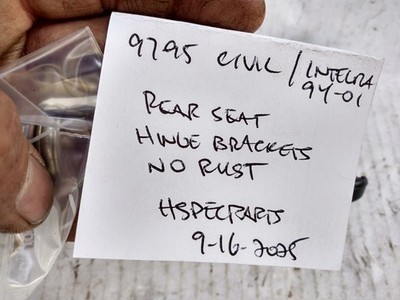 9795 CIVIL / INTEGRA
94-01
REAR SEAT
HINGE BRACKETS
NO RUST
HSPECPARTS
9-16-2025